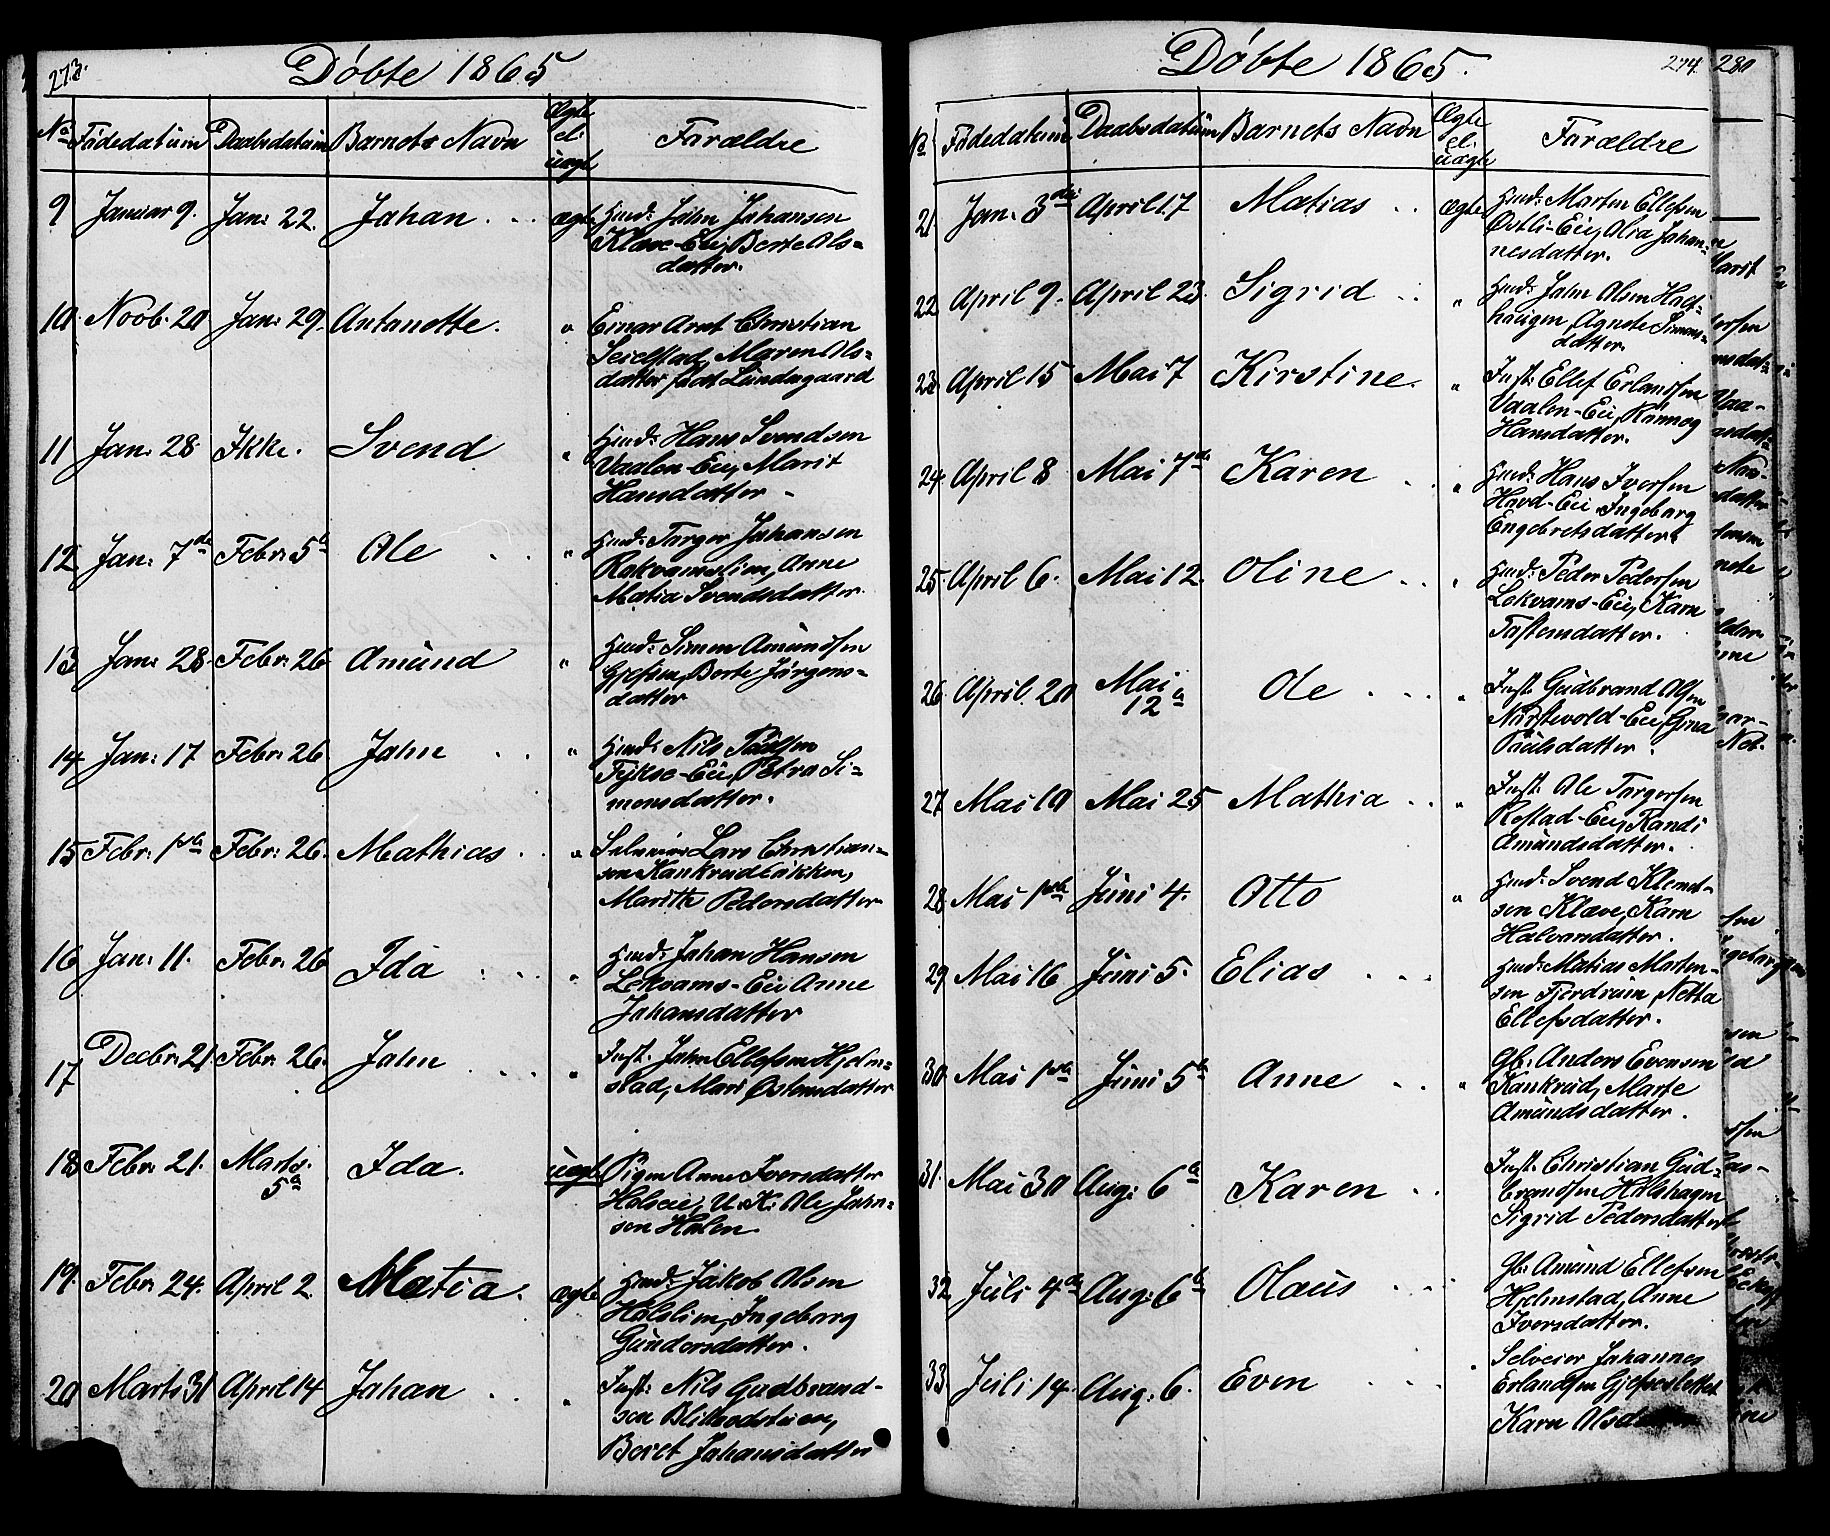 273.
Döbte 1865
No Födedatum Daabsdatum Barnets Navn Ægte el uægte Forældre
9 Januar 9. Jan: 22. Johan . . ægte Huusmd: John Johansen
Klæve-Eie, Berte Ols-
datter.
10. Novb. 20 Jan: 29. Antonette. " Einar Arnt Christian
Seielstad, Maren Ols-
datter født Lundegaard
11 Jan: 28 Ikke. Svend " Huusmd: Hans Svendsen
Vaalen-Eie, Marit
Hansdatter
12 Jan: 7de Febr: 5te Ole . . " Huusmd: Torger Johansen
Rokvamslien, Anne
Matia Svendsdatter.
13 Jan: 28. Febr: 26 Amund " Huusmd: Simen Amundsen
Berte Jörgens-
datter
14 Jan: 17 Febr: 26 John . . " Huusmd: Nils Paulsen
Fykse-Eie, Petra Si-
monsdatter.
15 Febr: 1ste Febr: 26. Mathias . . " Selveier Lars Christian-
sen Kankrudbakken,
Maritte Pedersdatter
16 Jan: 11. Febr: 26 Ida . . " Huusmd: Johan Hansen
Lekvams-Eie Anne
Johansdatter
17 Decbr: 21. Febr: 26. John . . " Inst: John Ellefsen Hjelm-
stad, Mari Østensdatter
18 Febr: 21. Marts. 5te Ida. uægte Pigen Anne Iversdatter
U. K. Ole John-
sen Holen.
19. Febr: 24. April 2. Matia. ægte Huusmd: Jakob Olsen
Holslien, Ingeborg
Gundersdatter.
20 Marts 31 April 14 Johan . . " Inst: Nils Gudbrand-
sen
Beret Johansdatter
Döbte 1865.
274.
No Födedatum Daabsdatum Barnets Navn Ægte el. uægte Forældre
21 Jan: 3die April 17 Matias . . ægte Huusmd: Morten Ellefsen
Østli-Eie, Olea Johan-
nesdatter.
22 April 9. April 23. Sigrid . . " Huusmd: John Olsen
haugen, Agnete Simens-
datter.
23 April 15 Mai 7 Kirstine. " Inst: Ellef Erlandsen
Vaalen-Eie, Rannog
Hansdatter.
24. April 8 Mai 7de Karen . . " Huusmd: Hans Iversen
Hovd-Eie Ingeborg
Engebretsdatter.
25. April 6. Mai 12. Oline . . " Huusmd: Peder Pedersen
Lekvams-Eie, Karn
Tostensdatter.
26 April. 20 Mai 12te Ole . . " Inst: Gudbrand Olsen
Nordtvold-Eie, Gina
Paulsdatter.
27 Mai 10 Mai 25 Mathia . . " Inst: Ole Torgersen
Rostad-Eie, Randi
Amundsdatter.
28. Mai 1ste Juni 4. Otto " Huusmd: Svend Klemet-
sen Klæve, Karn
Halvorsdatter.
29 Mai 16 Juni 5. Elias . . Huusmd: Matias Morten-
sen Fjerdrum, Netta
Ellefsdatter.
30. Mai 1ste Juni 5te Anne . . " Gb: Anders Evensen
Kankrud, Marte
Amundsdatter.
31. Mai 30 Aug: 6te Karen . . Inst: Christian Gud-
brandsen Holshagen
Sigrid Pedersdatter
32 Juli 4de Aug: 6te Olaus . . Gb: Amund Ellefsen
Hjelmstad, Anne
Iversdatter.
33. Juli 14. Aug: 6. Even . . . Selveier Johannes
Erlandsen
Karn Olsdatter
280